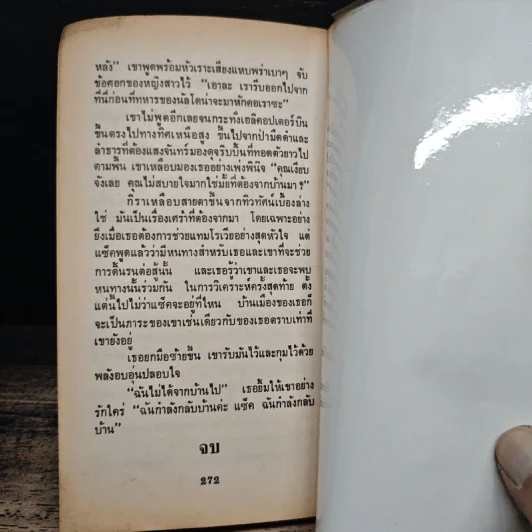 หลัง” เขาพูดพร้อมหัวเราะเสียงแหบพร่าเบาๆ จับ
ข้อศอกของหญิงสาวไว้ “เอาละ เรารีบออกไปจาก
ที่นี่ก่อนที่ทหารของนัลโดน่าจะมาหักคอเราซะ”
เขาไม่พูดอีกเลยจนกระทั่งเฮลิคอปเตอร์บิน
ขึ้นตรงไปทางทิศเหนือสูง ขึ้นไปจากป่ามืดดำและ
ลำธารที่ต้องแสงจันทร์มองดุจริบบิ้นที่ทอดตัวยาวไป
ตามพื้น เขาเหลือบมองเธออย่างเพ่งพินิจ “คุณเงียบ
จังเลย คุณไม่สบายใจมากใช่มั้ยที่ต้องจากบ้านมา?”
กีราเหลือบสายตาขึ้นจากทิวทัศน์เบื้องล่าง
ใช่ มันเป็นเรื่องเศร้าที่ต้องจากมา โดยเฉพาะอย่าง
ยิ่งเมื่อเธอต้องการช่วยแทมโรเวียอย่างสุดหัวใจ แต่
แซ็คพูดแล้วว่ามีหนทางสำหรับเธอและเขาที่จะช่วย
การดิ้นรนต่อสู้นั้น และเธอรู้ว่าเขาและเธอจะพบ
หนทางนั้นร่วมกัน ในการวิเคราะห์ครั้งสุดท้าย ตั้ง
แต่นี้ไปไม่ว่าแซ็คจะอยู่ที่ไหน บ้านเมืองของเธอก็
จะเป็นภาระของเขาเช่นเดียวกับของเธอตราบเท่าที่
เขายังอยู่
เธอยกมือซ้ายขึ้น เขารับมันไว้และกุมไว้ด้วย
พลังอบอุ่นปลอบใจ
“ฉันไม่ได้จากบ้านไป” เธอยิ้มให้เขาอย่าง
รักใคร่ “ฉันกำลังกลับบ้านค่ะ แซ็ค ฉันกำลังกลับ
บ้าน”
จบ
272